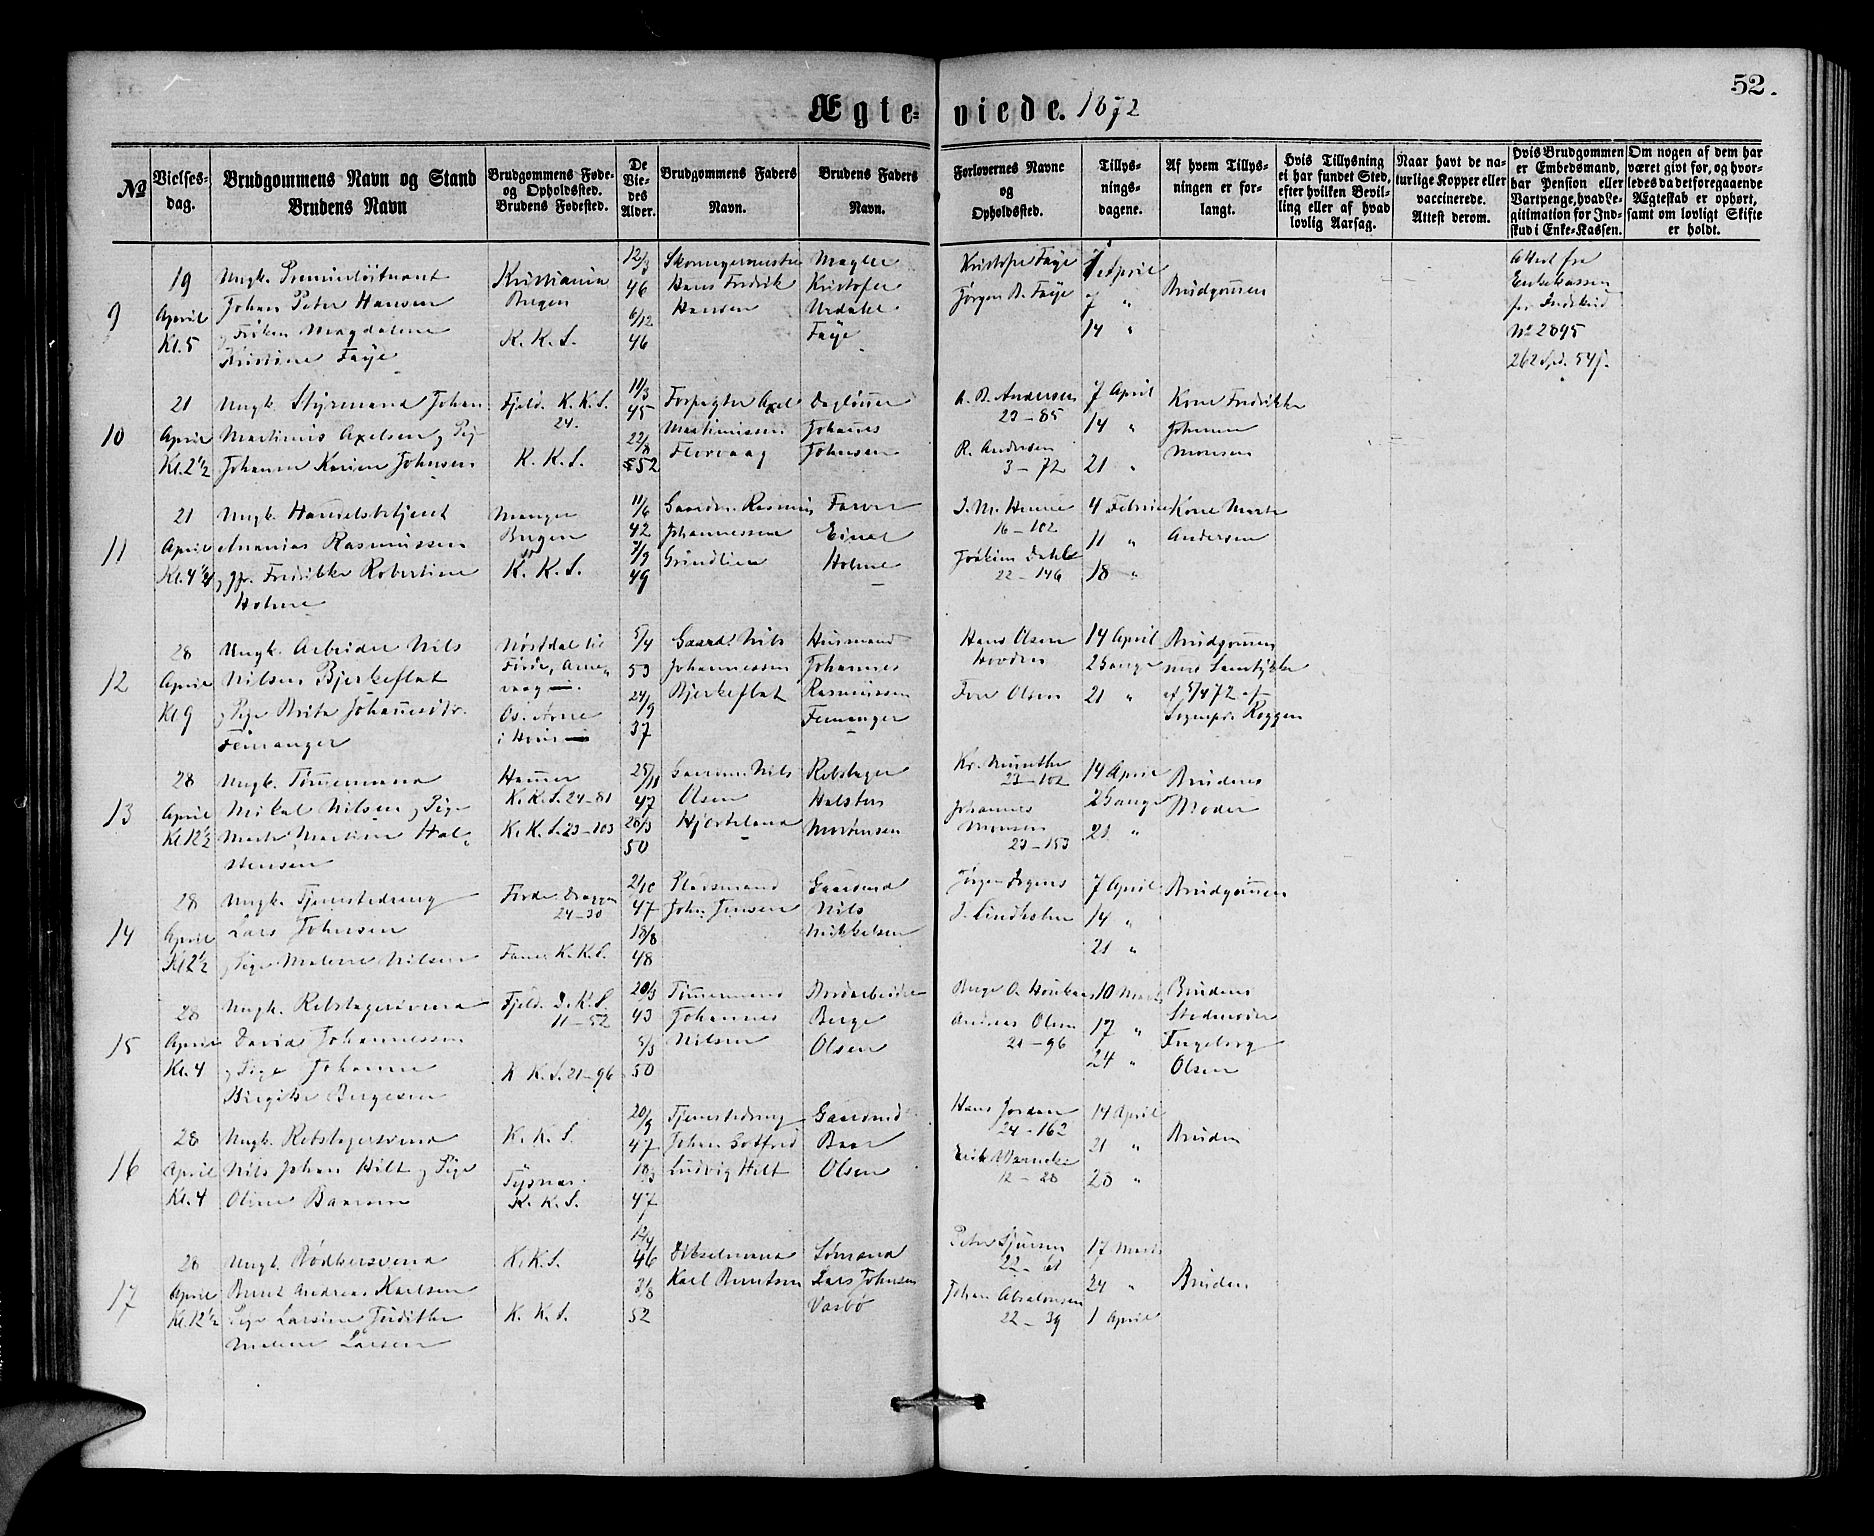 52.
Ægte- viede. 1872
№
Vielses-
dag.
Brudgommens Navn og Stand
Brudens Navn
Brudgommens Føde-
og Opholdssted.
Brudens Fødested.
De
Vie-
des
Alder.
Brudgommens Faders
Navn.
Brudens Faders
Navn.
Forlovernes Navne
og
Opholdssted.
Tillys-
nings-
dagene.
Af hvem Tillys-
ningen er for-
langt.
Hvis Tillysning
ei har fundet Sted,
efter hvilken Bevil-
ling eller af hvad
lovlig Aarsag.
Naar havt de na-
turlige Kopper eller
vaccinerede.
Attest derom.
Hvis Brudgommen
er Embedsmand,
har Pension eller
Vartpenge, hvad Le-
gitimation for Ind-
skud i Enke-Kassen.
Om nogen af dem har
været gift før, og hvor-
ledes da det foregaaende
Ægteskab er ophørt,
samt om lovligt Skifte
er holdt.
9
19
April
Kl. 5
Ungk. Premierløitnant
Johan Peter Hansen
Frøken Magdalene
Kristine Faye
Kristiania
Bergen
K. K. S.
12/3
46
6/12
46
Hans Fredrik
Hansen
Mægler
Kristofer
Urdahl
Faye
Kristofer Faye
Jørgen B. Faye
7 April
7 "
14 "
Brudgommen
Attest fra
Enkekassen
for Indskud
№ 2895
262 Spd. 54 s.
10
21
April
Kl. 2½
Ungk. Styrmand Johan
Martinus Axelsen og Pige
Johanne Karine Johnsen
Fjeld. K. K. S.
24.
K. K. S.
11/3
45
22/8
52
Forpagter Axel
Martinussen
Florvaag
Dagløner
Johannes
Johnsen
A. B. Andersen
23 - 85
R. Andersen
3 - 72
7 April
14 "
21 "
Kone Fredrikke
Johanne
Monsen
11
21
April
Kl. 4¼
Ungk. Handelsbetjent
Ananias Rasmussen
og Jfr. Fredrikke Robertine
Holme
Manger
Bergen
K. K. S.
11/6
42
7/9
49
Gaardm. Rasmus
Johannessen
Grindlien
Farver
Einar
Holme
16 - 102
Joakim Dahl
22 - 146
4 Februar
11 "
18 "
Kone Marte
Andersen
12
28
April
Kl. 9
Ungk. Arbeider Nils
Nilsen Bjerkeflat
og Pige Brita Johannesdr.
Femanger
5/4
53
24/9
37
Gaardm. Nils
Johannessen
Bjerkeflat
Husmand
Johannes
Rasmussen
Femanger
Hans Olsen
Iver Olsen
14 April
2 Gange
21 "
Brudgommen
med Samtykke
af 5/4 72 af
Sognepr. Koggen
13
28
April
Kl. 12½
Ungk. Tømmermand
Mikal Nilsen og Pige
Marte Martine Hal-
stensen
Hammer
K. K. S. 24-81
K. K. S. 23-103
25/11
47
20/3
50
Gaardm. Nils
Olsen
Hjerteland
Rebslager
Halsten
Mortensen
23 - 102
Johannes
Monsen
23 - 153
14 April
2 Gange
21 "
Brudens
Moder
14
28
April
Kl. 2½
Ungk. Tjenestedreng
Lars Johnsen
og Pige Malene Nilsen
Førde. Dræggen
24-30
Fane. K. K. S.
2/10
47
18/8
48
Pladsmand
John Jensen
Gaardmd
Nils
Mikkelsen
J. Lindholm
7 April
14 "
21 "
Brudgommen
15
28
April
Kl. 4
Ungk. Rebslagersvend
David Johannessen
og Pige Johanne
Birgitte Bergesen
Fjeld. D. K. S.
11 - 52
K. K. S. 21-96
20/3
43
5/3
50
Tømmermand
Johannes
Nilsen
Jordarbeider
Berge
Olsen
Andreas Olsen
21 - 96
10 Marts
17 "
24 "
Brudens
Stedmoder
Ingeborg
Olsen
16
28
April
Kl. 4
Ungk. Rebslagersvend
Nils Johan Hilt og Pige
Oline Baarsen
K. K. S.
Tysnæs.
K. K. S.
20/9
47
18/3
47
Tjenestedreng
Johan Gotfred
Ludvig Hilt
Gaardmd
Baar
Olsen
Hans Jordan
24 - 162
Erik Warncke
12 - 28
14 April
21 "
28 "
Bruden
17
28
April
Kl. 12½
Ungk. Bødkersvend
Bernt Andreas Karlsen
Pige Larsine Fredrikke
Malene Larsen
K. K. S.
K. K. S.
12/4
46
3/8
52
Karl Berntsen
Sømand
Lars Johnsen
Vasbø
Peter Sjursen
22 - 61
Johan Absalonsen
22 - 39
17 Marts
24 "
1 April
Bruden